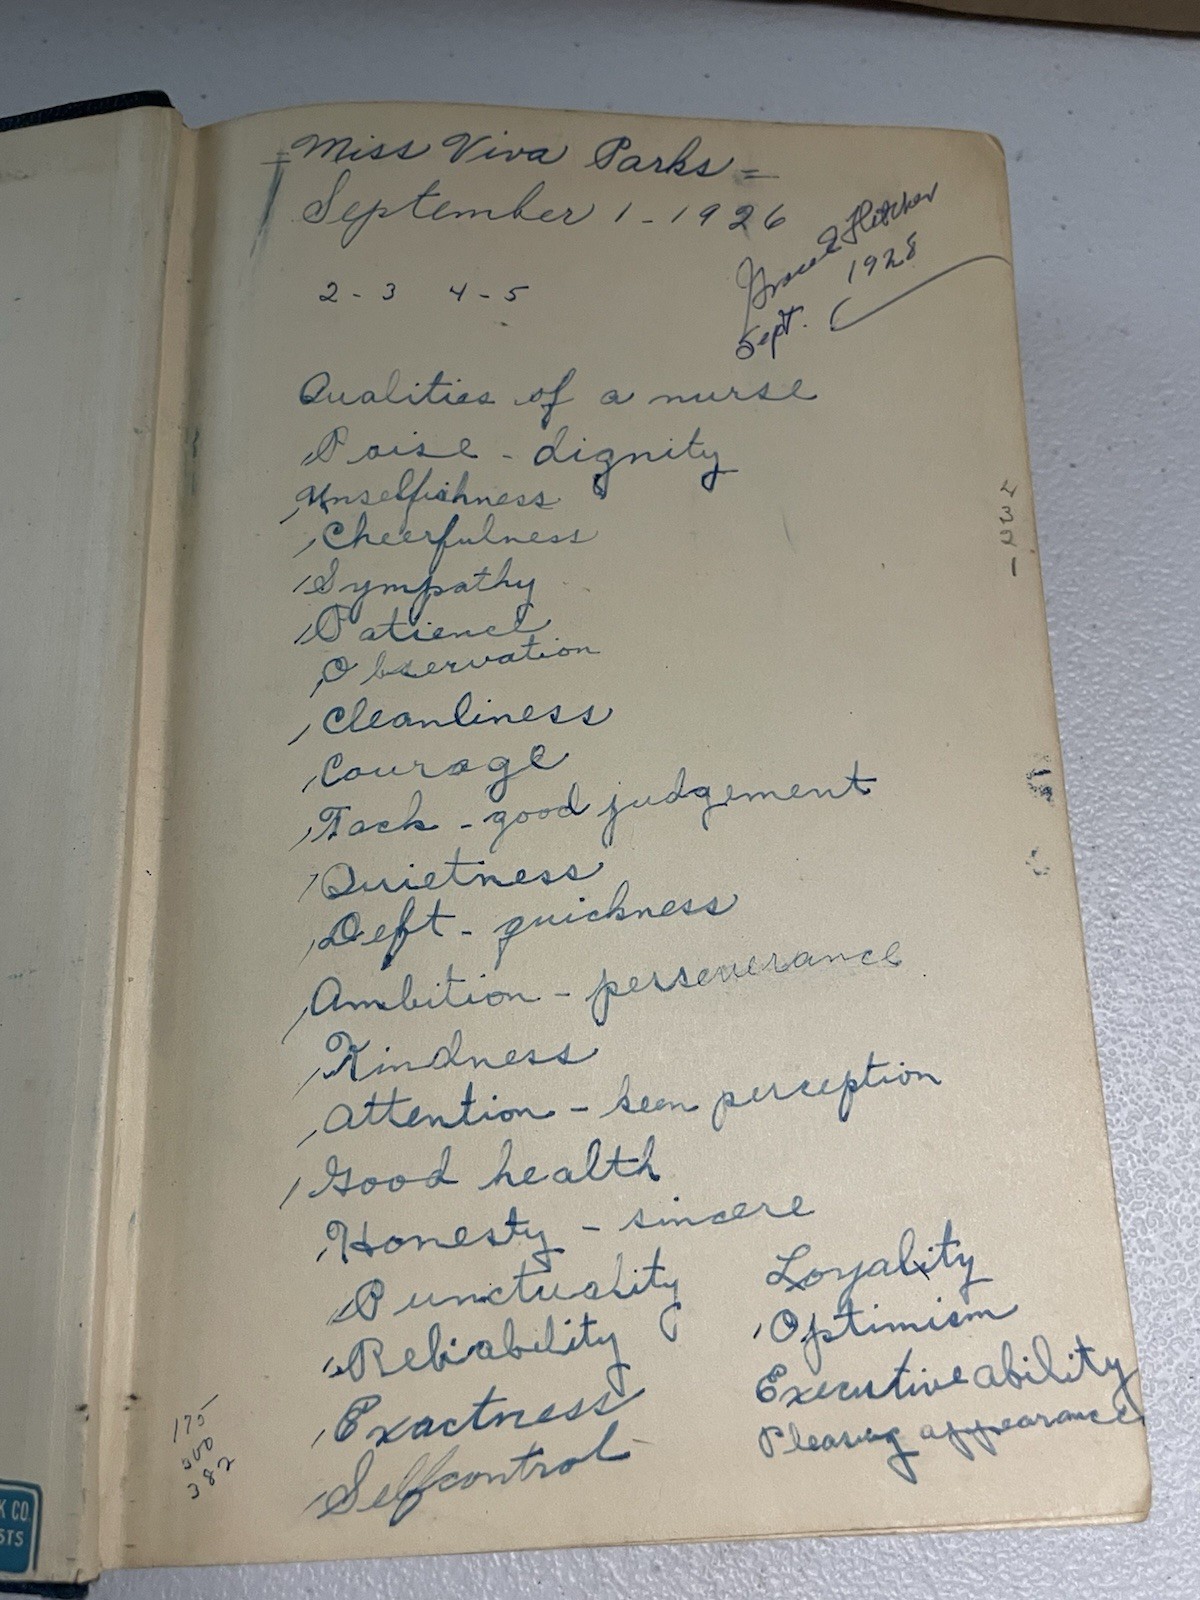 = Miss Viva Parks =
September 1 - 1926
Fletcher
Sept. 1928
2 - 3 4 - 5
Qualities of a nurse
Poise - dignity
Unselfishness
Cheerfulness
Sympathy
Patience
Observation
Cleanliness
Courage
Tack - good judgement
Quietness
Deft - quickness
Ambition - perseverance
Kindness
Attention - keen perception
Good health
Honesty - sincere
Punctuality
Reliability
Exactness
Selfcontrol
Loyality
Optimism
Executive ability
Pleasing appearance
4
3
2
1
175
300
382
K CO.
STS